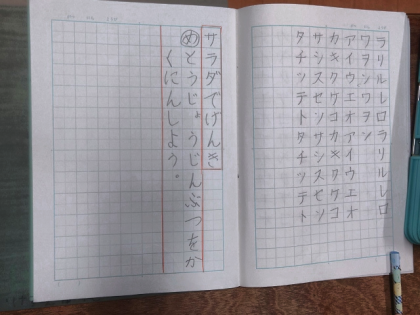 ラリルレロラリルレロ
ワヲンワヲン
アイウエオアイウエオ
カキクケコカキクケコ
サシスセソサシスセソ
タチツテトタチツテト
サラダでげんき
めとうじょうじんぶつをか
くにんしよう。